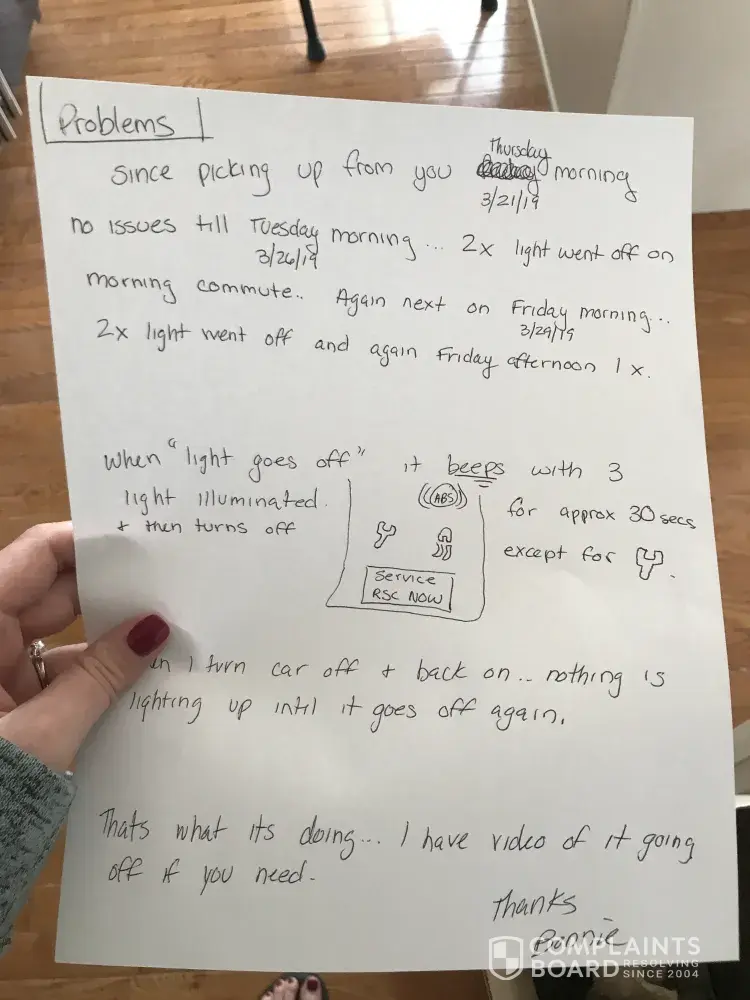 Problems
Thursday
since picking up from you morning
3/21/19
no issues till Tuesday morning... 2x light went off on
3/26/19
morning commute.. Again next on Friday morning...
3/29/19
2x light went off and again Friday afternoon 1x.
When "light goes off" it beeps with 3
light illuminated. for approx 30 secs
+ then turns off except for
ABS
Service
RSC NOW
I turn car off + back on.. nothing is
lighting up intil it goes off again.
Thats what its doing... I have video of it going
off if you need.
Thanks
Bonnie
COMPLAINTS
BOARD RESOLVING SINCE 2004